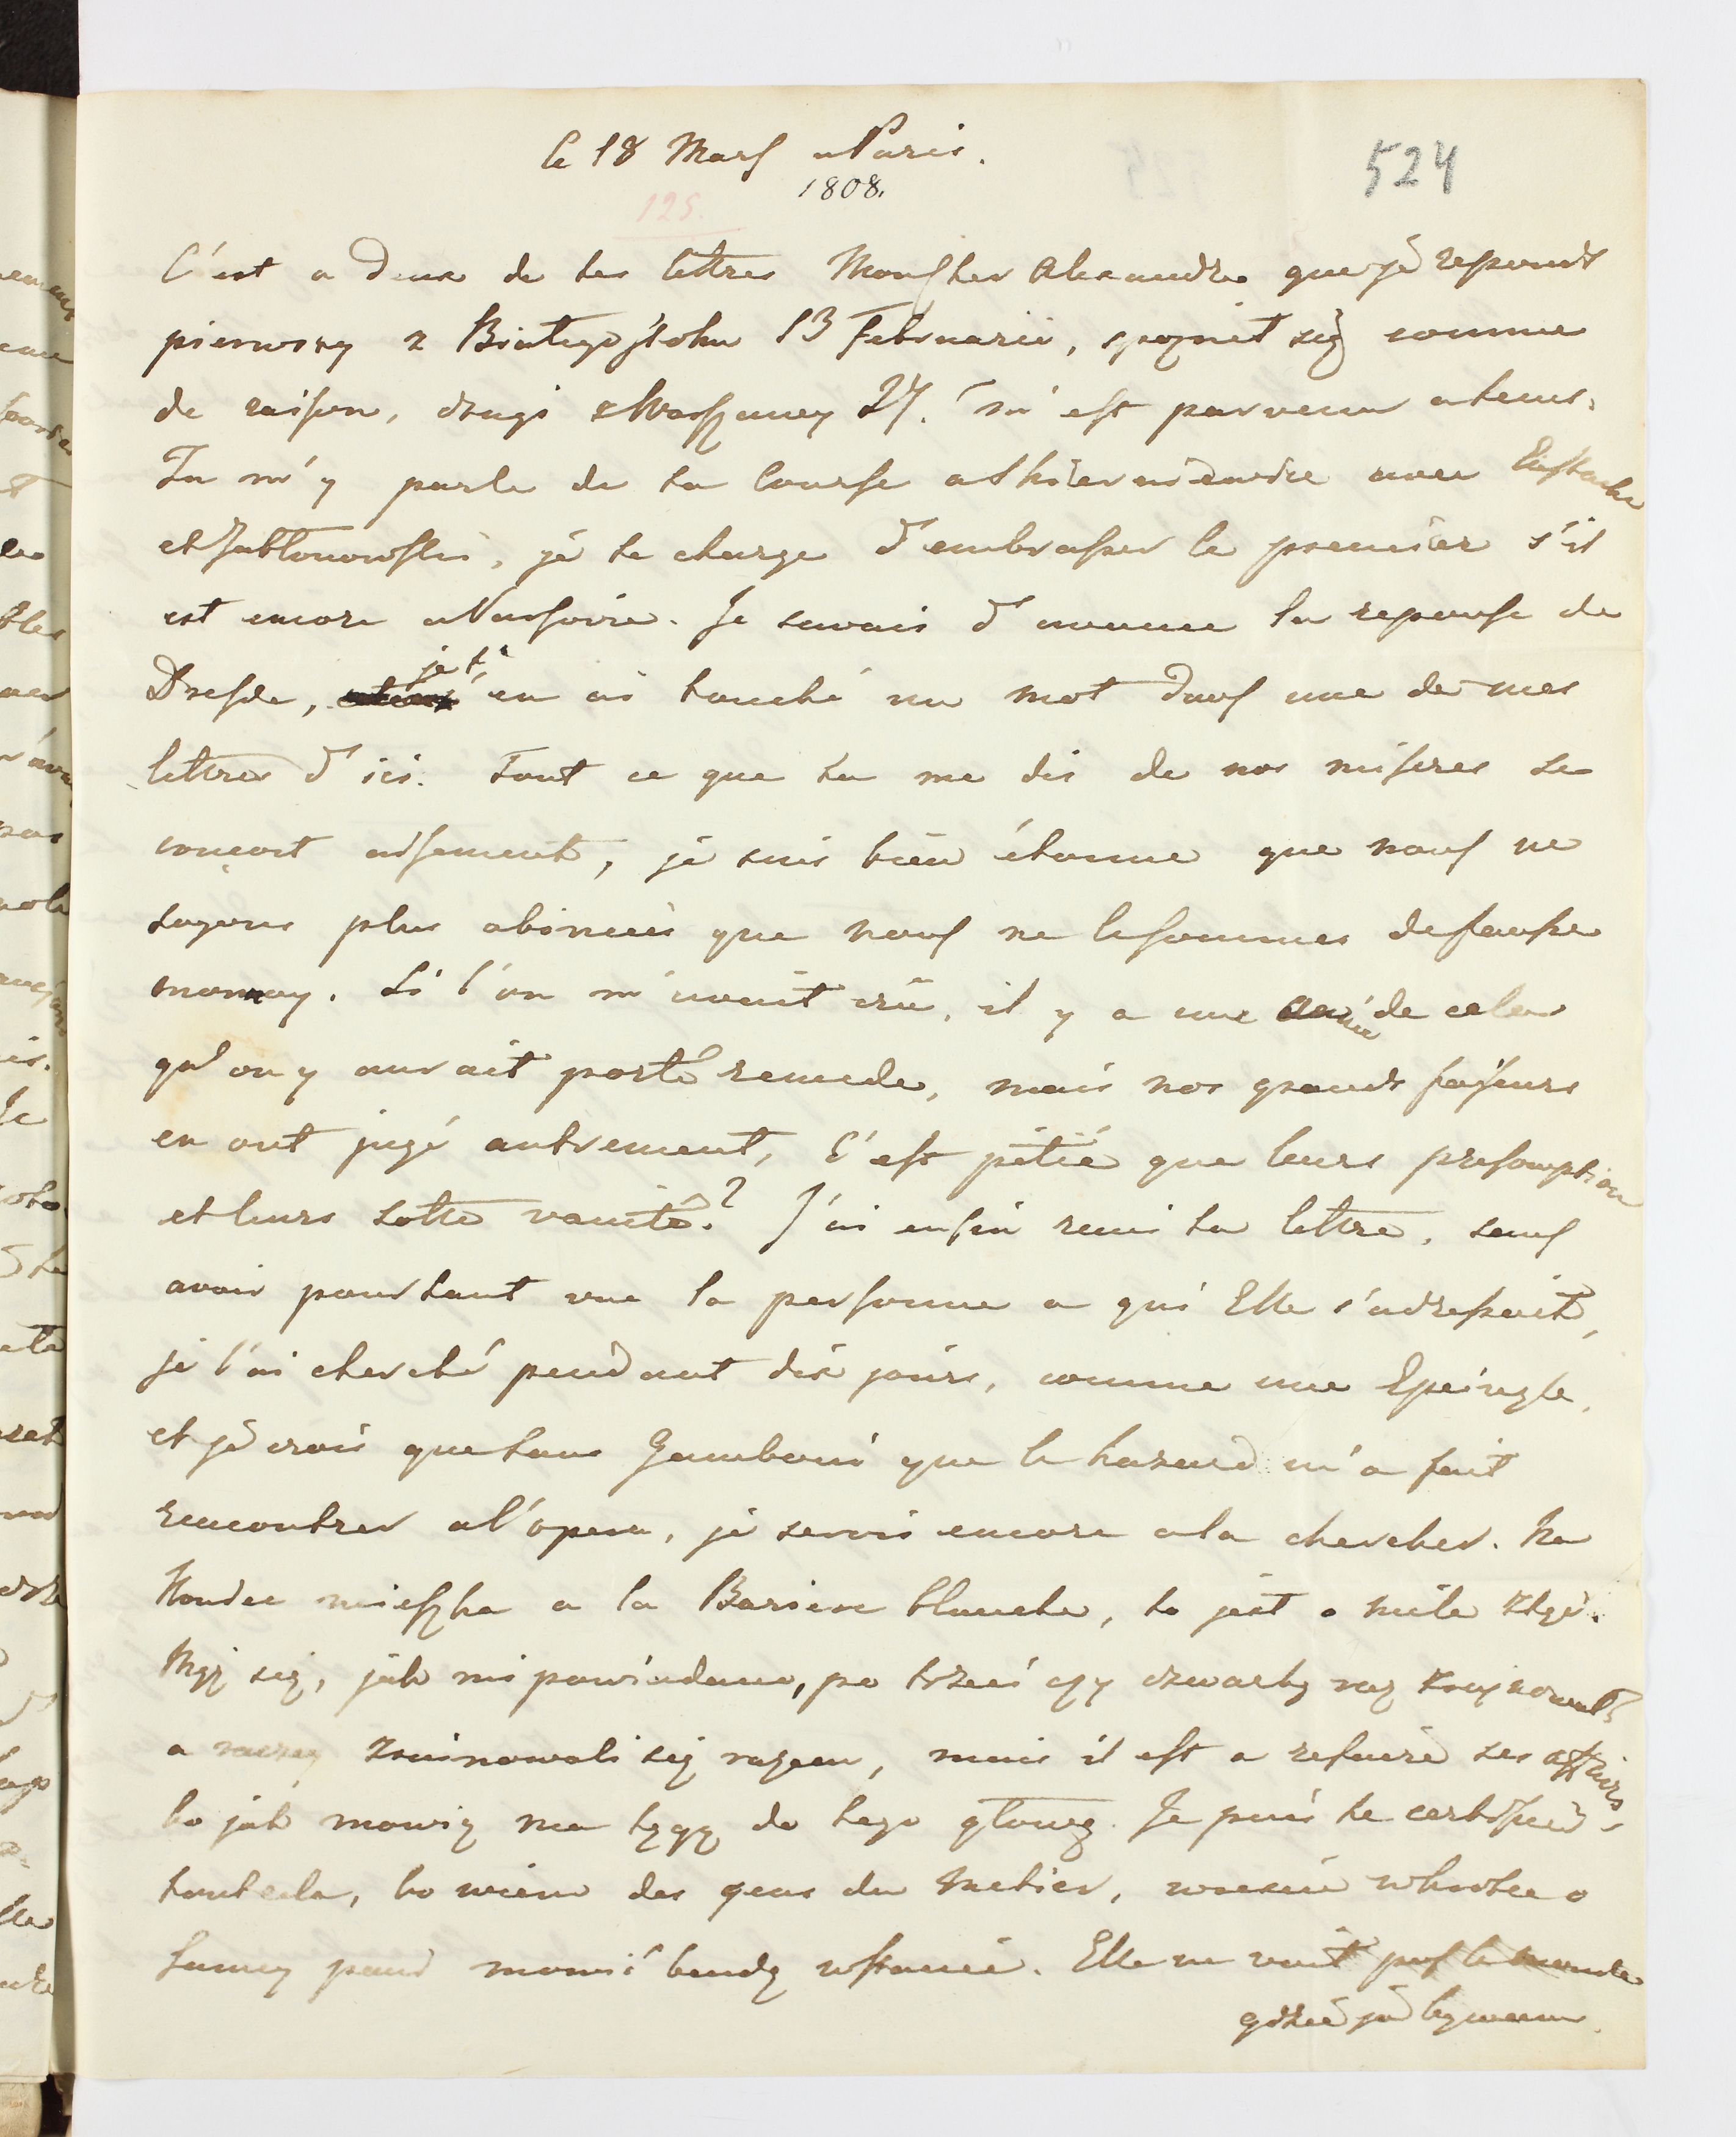 le 18 Mars a Paris.
1808.
524
125.
C'est a deux de tes lettres Mons cher Alexandre que je reponds
pierwszy z Białegostoku 13 Februarii, spoznił się comme
de raison, drugi z Warszawy 27. m'est parvenu a tems.
Tu m'y parle de ta Course a Skierniewice avec Eustache
et Jabłonowski, je te charge d'embrasser le premier s'il
est encore a Varsovie. Je savais d'avance la reponse de
Dresde, je t'en ai touché un mot dans une de mes
lettres d'ici. Tout ce que tu me dis de nos miseres se
conçoit aisement, je suis bien étonné que nous ne
soyons plus abimées que nous ne le sommes de fausse
monnay. Si l'on m'avait crû, il y a une année de cela
qu'on y aurait porté remede, mais nos grands faiseurs
en ont jugé autrement, C'est pitié que leurs presomption
et leurs sotte vanité? J'ai enfin remi ta lettre, sans
avoir pourtant vue la personne a qui Elle s'adressait,
je l'ai cherché pendant dix jours, comme une Epeingle,
et je crois que sans Gamboni que le hazard m'a fait
rencontrer a l'opera, je serois encore a la chercher. Na
Koniec mieszka a la Bariere blanche, to jest o mile ztąd.
Mąż się, jak mi powiadano, po trzeci czy czwarty raz zruynował,
a raczey zruinowali się razem, mais il est a refaire ses affaires
bo jak mowią ma tęgą do tego głowę. Je puis te certifier
tout cela, bo wiem des gens du metier, wreszcie wkrotce o
samey pani mowić bendę wstanie. Elle ne voit pas le monde
gdzie ja bywam.